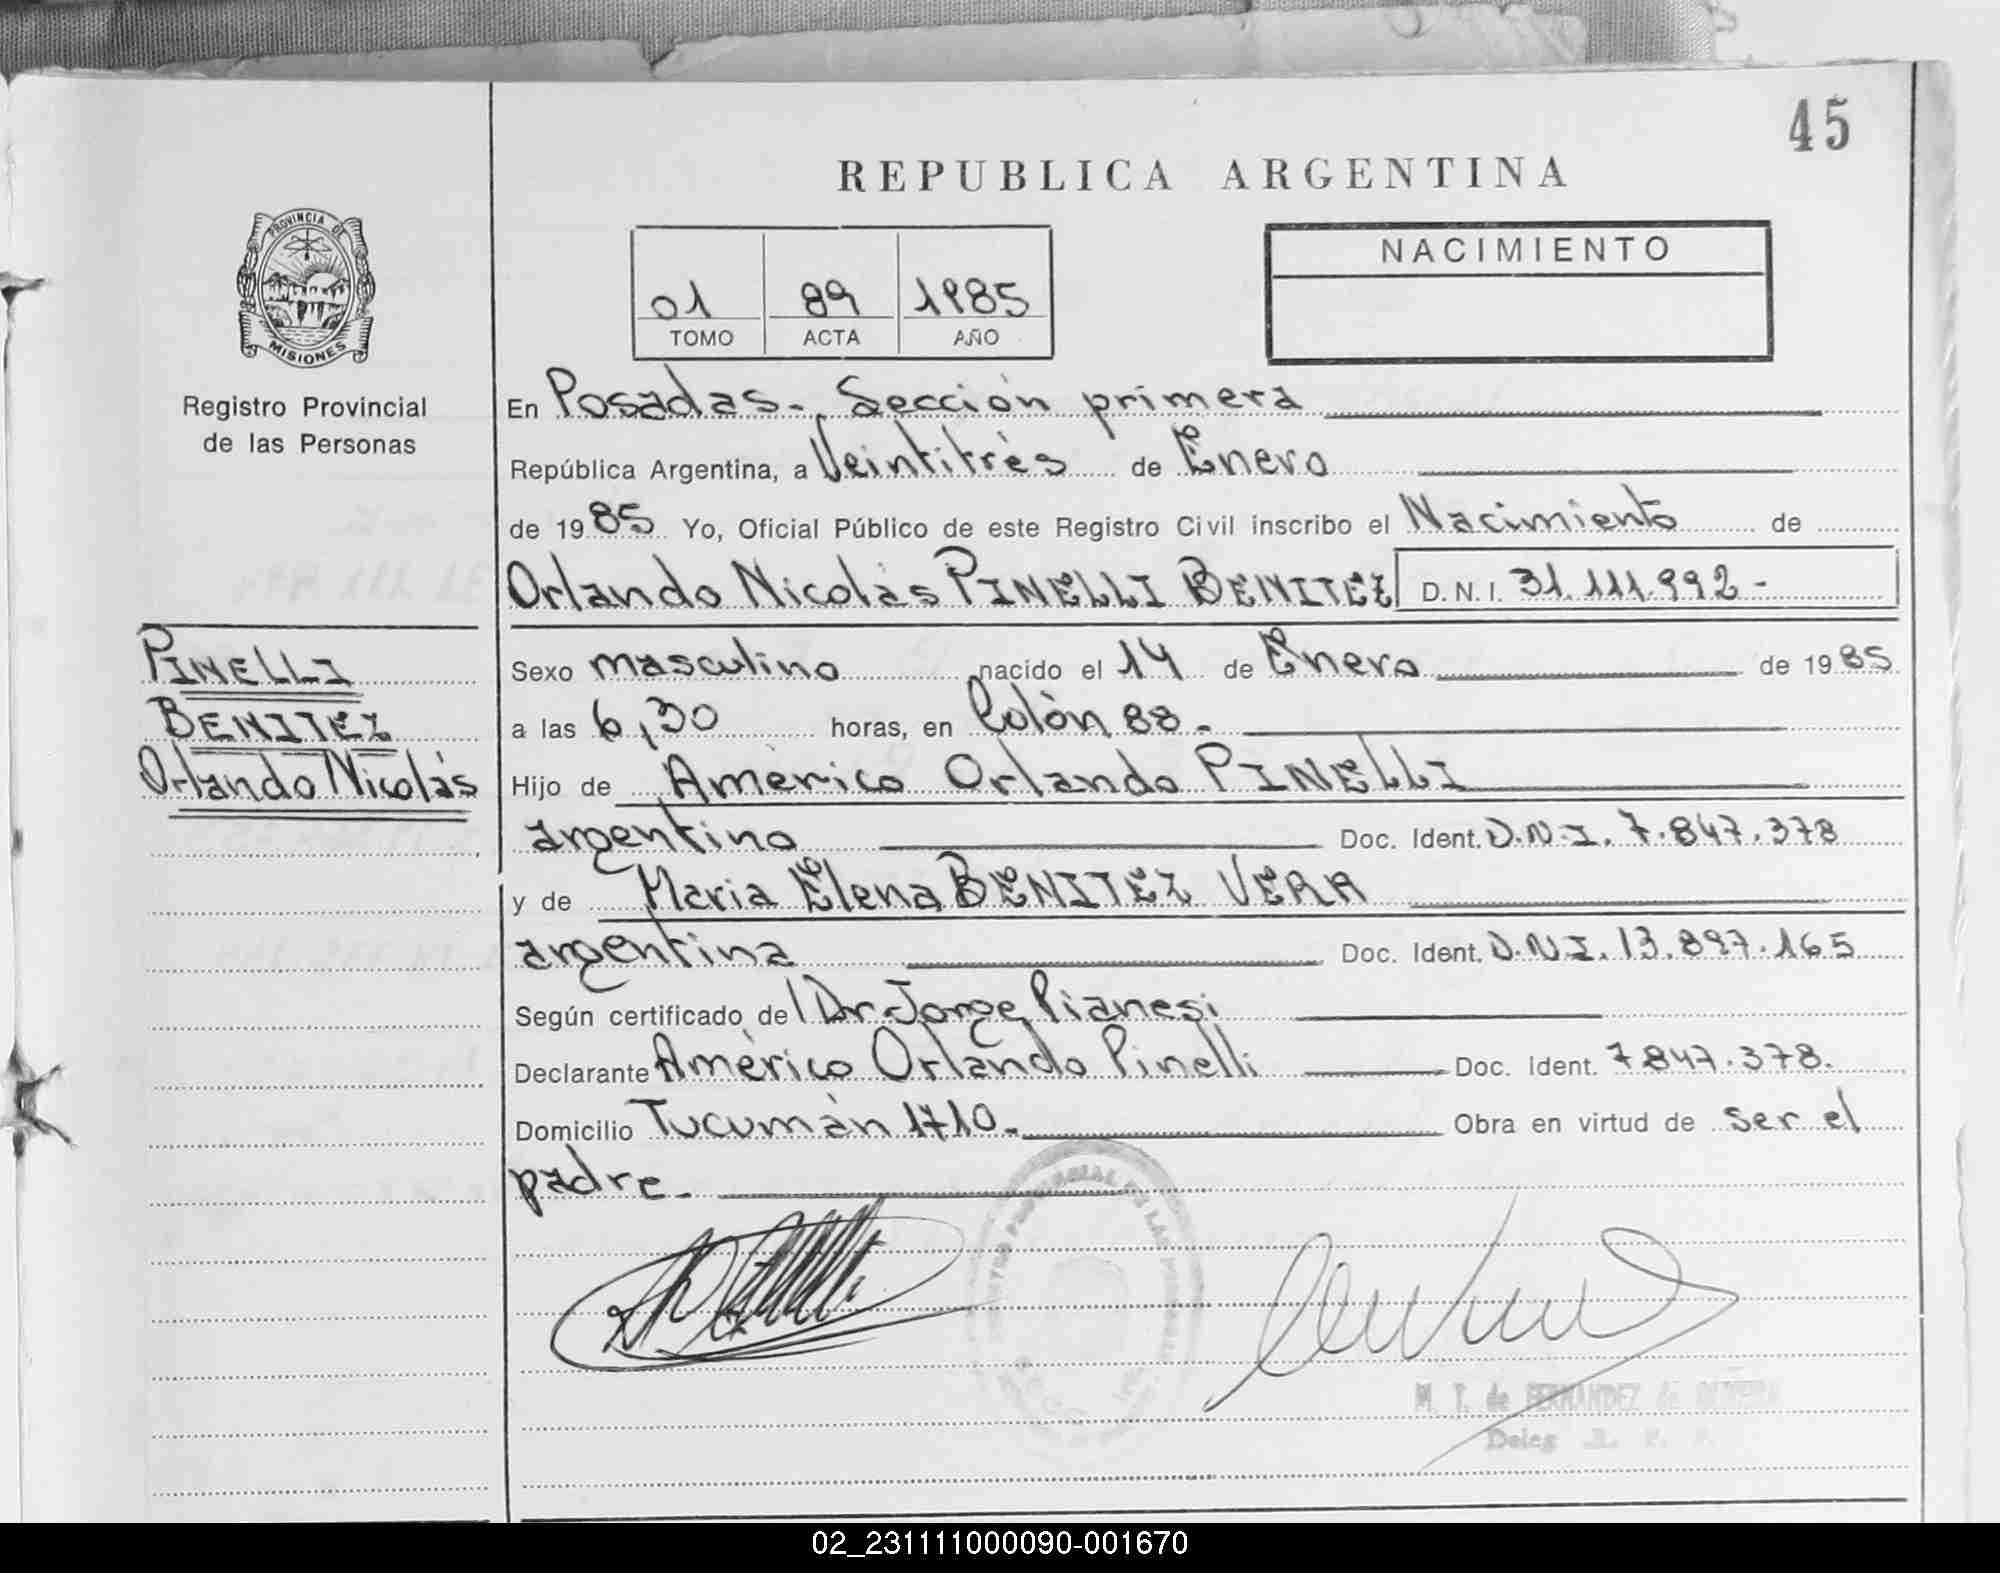 45
REPUBLICA ARGENTINA
PROVINCIA DE
MISIONES
Registro Provincial
de las Personas
01 89 1985
TOMO ACTA AÑO
NACIMIENTO
En Posadas.- Sección primera
República Argentina, a Veintitrés de Enero
de 1985 Yo, Oficial Público de este Registro Civil inscribo el Nacimiento de
Orlando Nicolás PINELLI BENITEZ D. N. I. 31.111.992-
PINELLI
BENITEZ
Orlando Nicolás
Sexo masculino nacido el 14 de Enero de 1985
a las 6,30 horas, en Colón 88.-
Hijo de Américo Orlando PINELLI
argentino Doc. Ident. D.N.I. 7.847.378
y de Maria Elena BENITEZ VERA
argentina Doc. Ident. D.N.I. 13.897.165
Según certificado de l Dr. Jorge Pianesi
Declarante Américo Orlando Pinelli Doc. Ident. 7847.378.
Domicilio Tucumán 1710.- Obra en virtud de ser el
padre.-
M. T. de FERNANDEZ de
Deleg R. P. P.
02_231111000090-001670